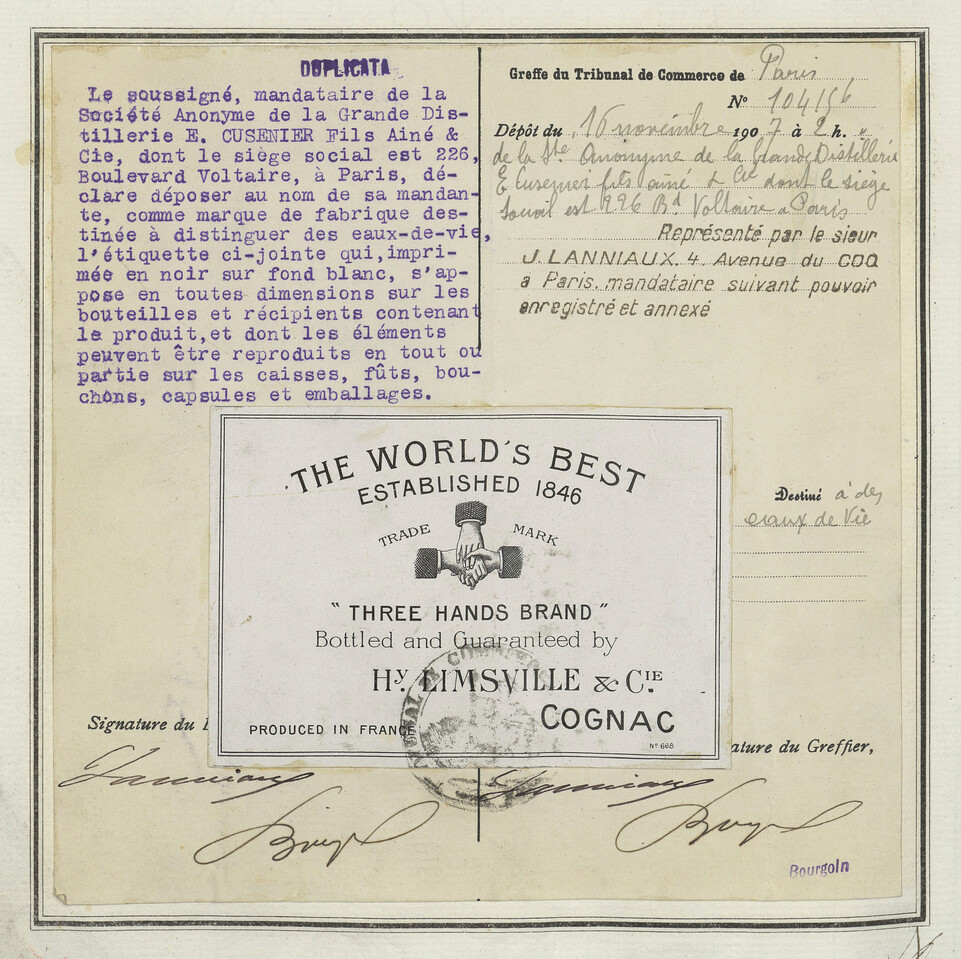 DUPLICATA
Le soussigné, mandataire de la
Société Anonyme de la Grande Dis-
tillerie E. CUSENIER Fils Ainé &
Cie, dont le siège social est 226,
Boulevard Voltaire, à Paris, dé-
clare déposer au nom de sa mandan-
te, comme marque de fabrique des-
tinée à distinguer des eaux-de-vie,
l'étiquette ci-jointe qui,impri-
mée en noir sur fond blanc, s'ap-
pose en toutes dimensions sur les
bouteilles et récipients contenant
le produit,et dont les éléments
peuvent être reproduits en tout ou
partie sur les caisses, fûts, bou-
chons, capsules et emballages.
Greffe du Tribunal de Commerce de Paris
No 104156
Dépôt du 16 novembre 1907 à 2 h. "
de la Ste Anonyme de la Grande Distillerie
E Cusenier fils ainé & Cie dont le siège
social est 226 Bd Voltaire a Paris
Représenté par le sieur
J. LANNIAUX. 4. Avenue du COQ
à Paris. mandataire suivant pouvoir
enregistré et annexé
Destiné à des
eaux de Vie
THE WORLD'S BEST
ESTABLISHED 1846
TRADE MARK
"THREE HANDS BRAND"
Bottled and Guaranteed by
Hy. LIMSVILLE & CIE.
COGNAC
PRODUCED IN FRANCE
No 668
Signature du
ature du Greffier,
Lanniaux
Lanniaux
Bourgoin